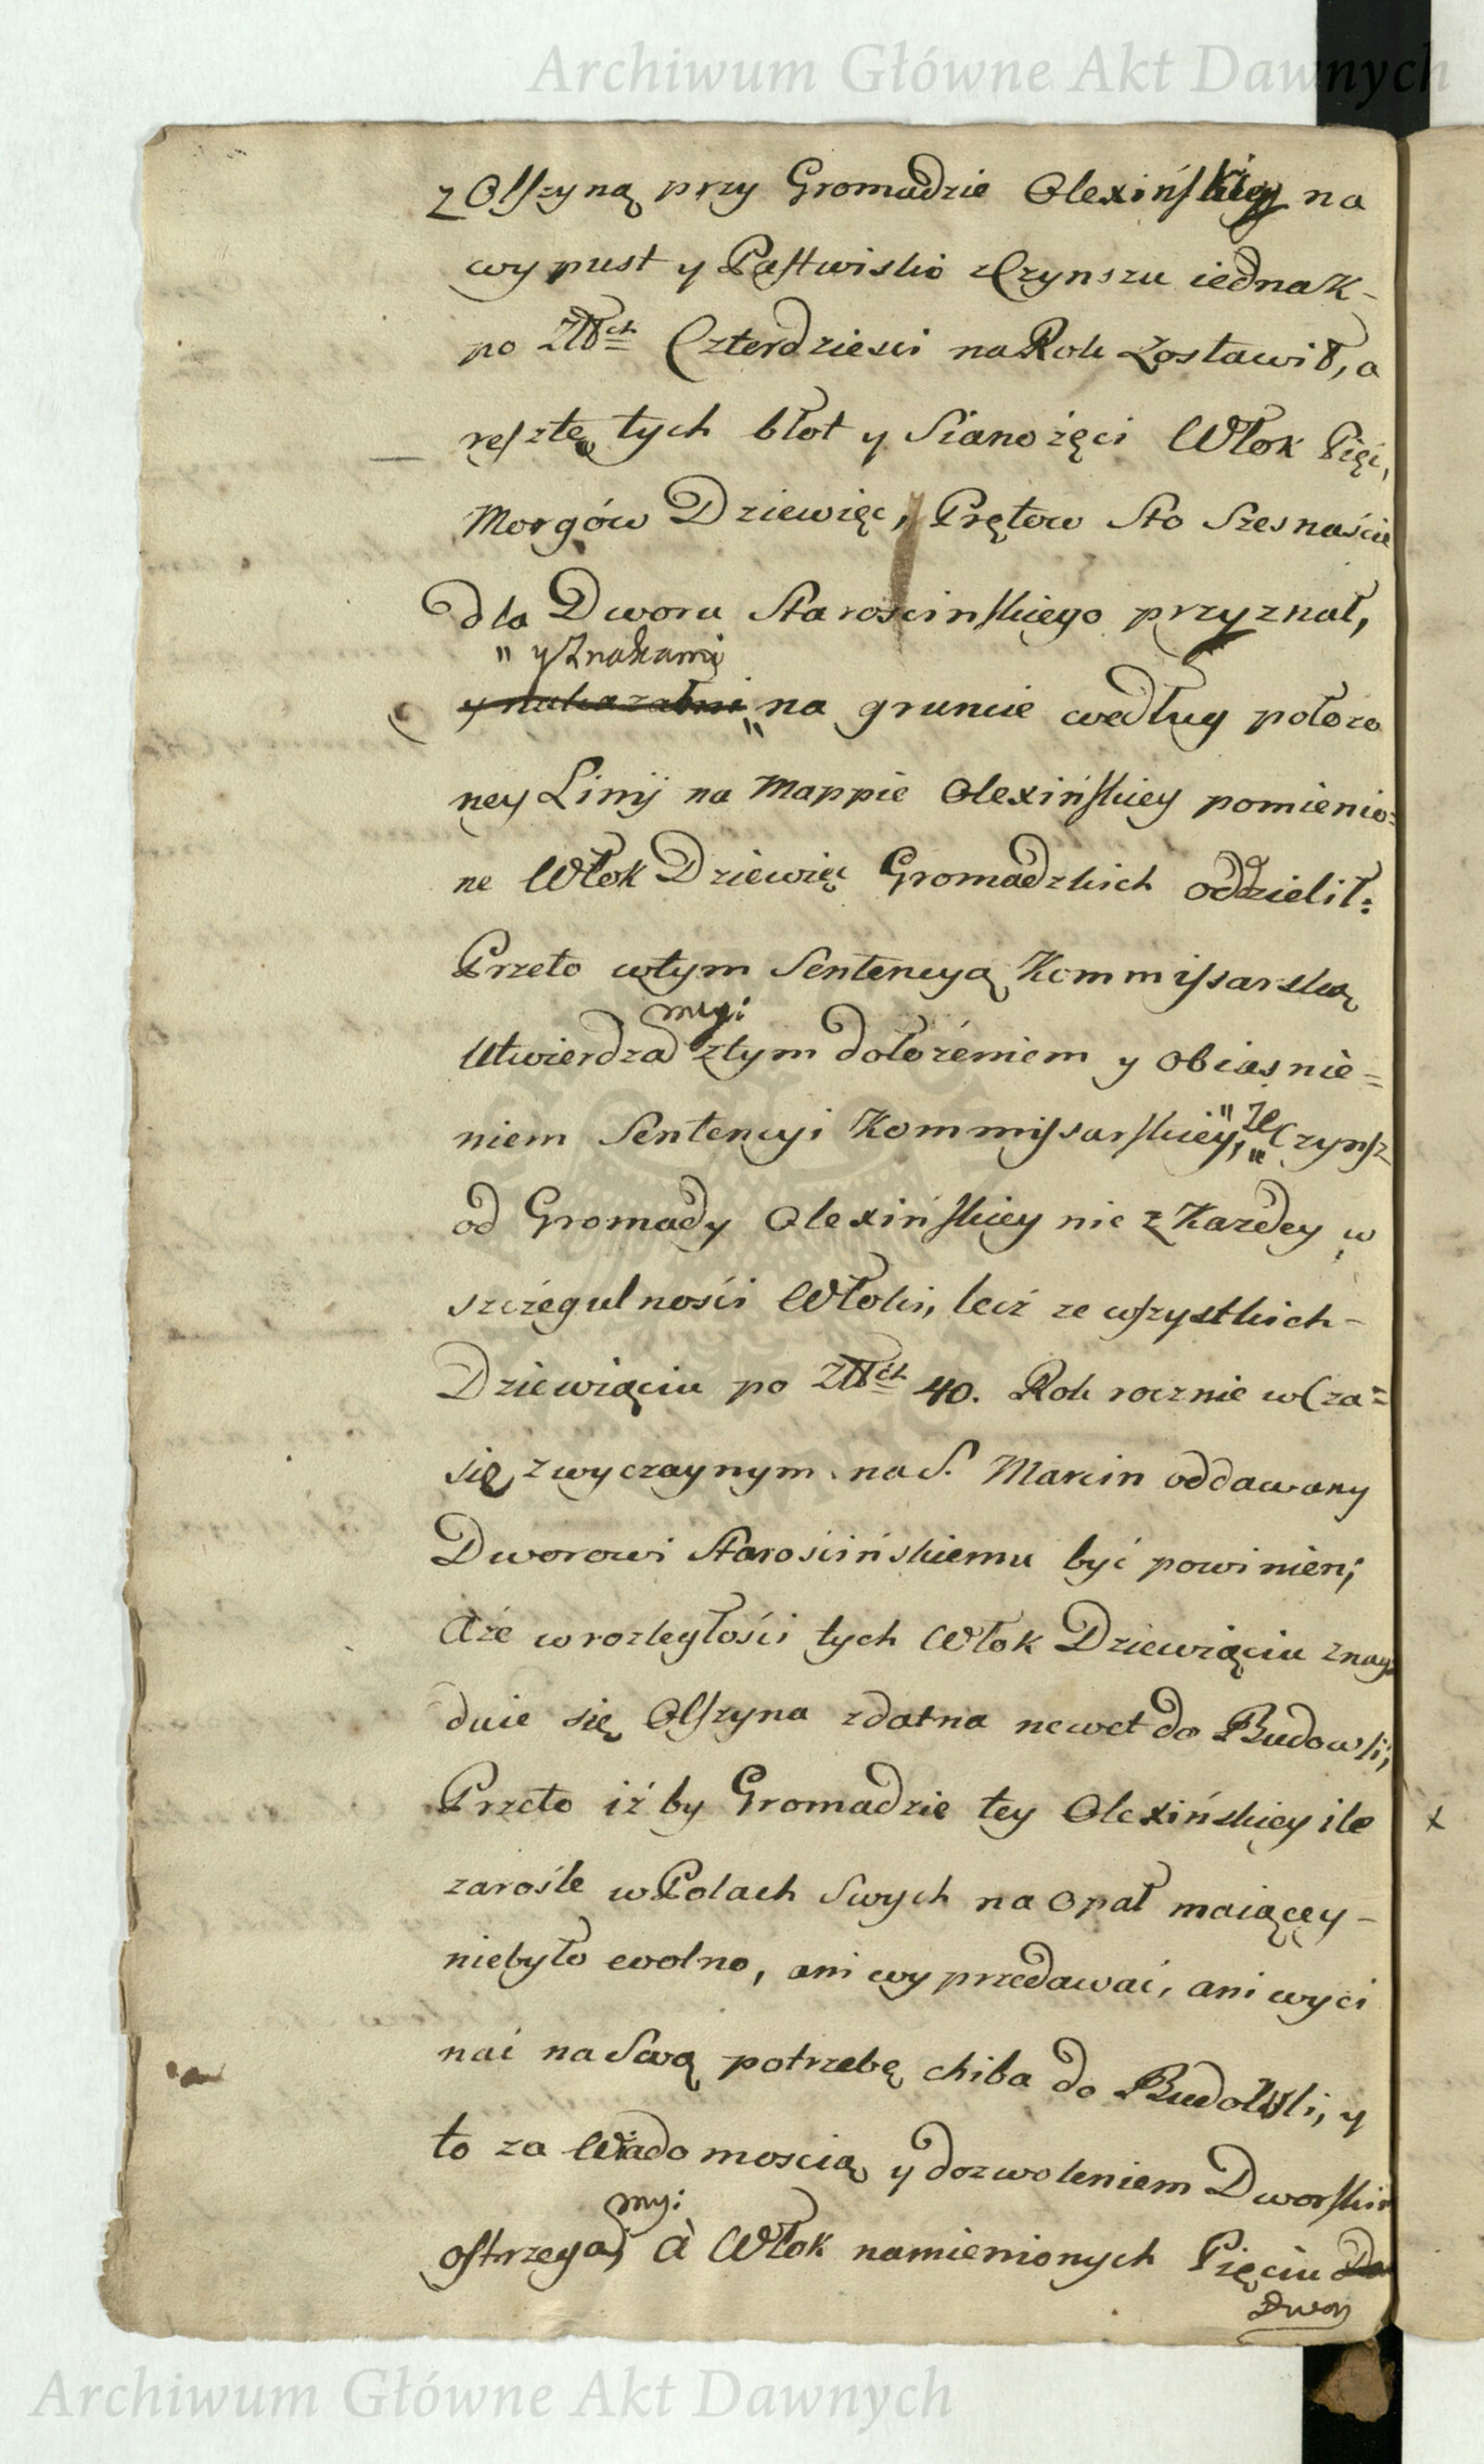 Archiwum Główne Akt Dawnych
z Olszyną przy Gromadzie Olexińskiey na
wypust y Pastwisko z Czynszu iednak-
po Złłch Czterdzieści na Rok zostawił, a
resztę tych błot y Sianożęci Włok Pięć,
Morgów Dziewięć, Prętow Sto Szesnaście
dla Dworu Starościnskiego przyznał,
" y Znakami
na gruncie według położo
ney Linij na Mappie Olexińskiey pomienio=
ne Włok Dziewięć Gromadzkich oddzielił:
Przeto w tym Sentencyą Kommissarską
my:
Utwierdza z tym dołożeniem y obiasnie=
niem Sentencyi Kommissarskiey, " że " Czynsz
od Gromady Olexińskiey nie z Kazdey w
szczegulności Włoki, lecz ze wszystkich-
Dziewiąciu po Złłch 40. Rok rocznie w Cza=
się zwyczaynym na S. Marcin oddawany
Dworowi Starościńskiemu być powinien;
A że w rozległości tych Włok Dziewiąciu znay
duie się Olszyna zdatna nawet do Budowli,
Przeto iż by Gromadzie tey Olexińskiey ile
zarośle w Polach Swych na opał maiącęy-
niebyło wolno, ani wyprzedawać, ani wyci
nać na Swą potrzebę chiba do Budowli, y
to za Wiadomoscią y dozwoleniem Dworskim
my:
ostrzega, à Włok namienionych Pięciu Do
Dwor
x
Archiwum Główne Akt Dawnych